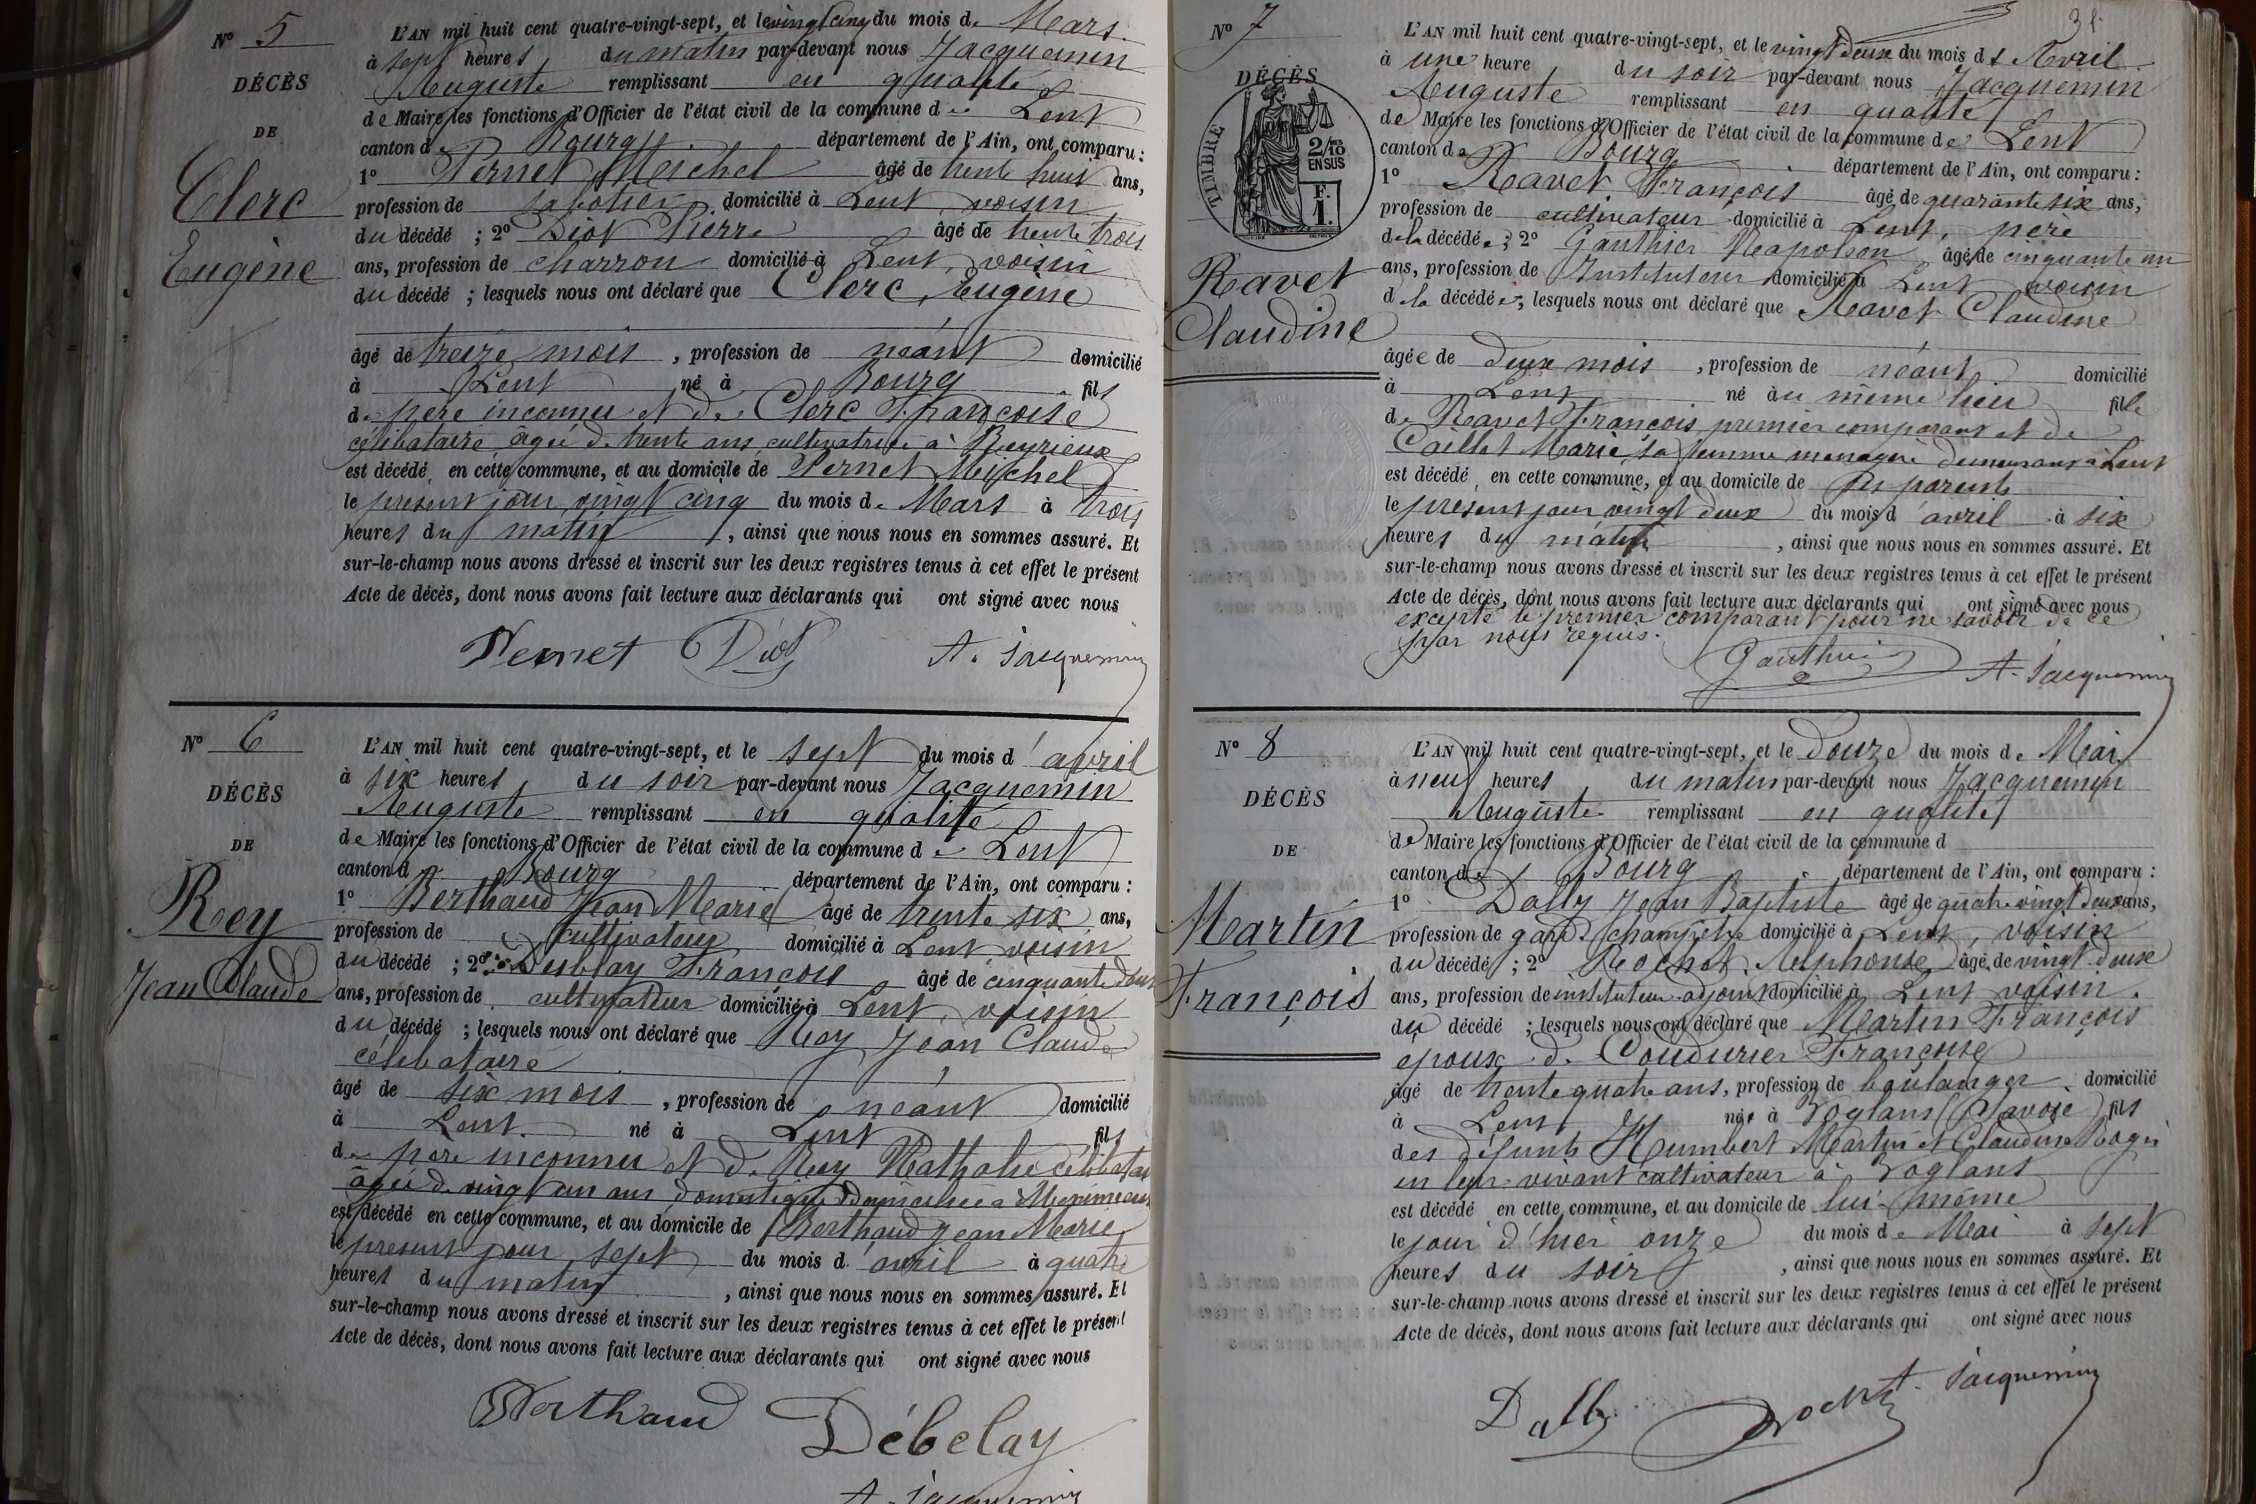 N° 5
DÉCÈS
DE
Clerc
Eugène
L'AN mil huit cent quatre-vingt-sept, et le vingt cinq du mois de Mars
à sept heures du matin par-devant nous Jacquemin
Auguste remplissant en qualité
de Maire les fonctions d'Officier de l'état civil de la commune de Lent
canton de Bourg département de l'Ain, ont comparu :
1° Pernet Michel âgé de trente huit ans,
profession de sabotier domicilié à Lent, voisin
du décédé ; 2° Diot Pierre âgé de trente trois
ans, profession de charron domicilié à Lent, voisin
du décédé ; lesquels nous ont déclaré que Clerc Eugène
âgé de treize mois, profession de néant domicilié
à Lent né à Bourg fils
de père inconnu et de Clerc Françoise
célibataire âgée de trente ans cultivatrice à
est décédé en cette commune, et au domicile de Pernet Michel
le présent jour vingt cinq du mois de Mars à trois
heures du matin, ainsi que nous nous en sommes assuré. Et
sur-le-champ nous avons dressé et inscrit sur les deux registres tenus à cet effet le présent
Acte de décès, dont nous avons fait lecture aux déclarants qui ont signé avec nous
Pernet Diot A. Jacquemin
N° 6
DÉCÈS
DE
Rey
Jean Claude
L'AN mil huit cent quatre-vingt-sept, et le sept du mois d'avril
à six heures du soir par-devant nous Jacquemin
Auguste remplissant en qualité
de Maire les fonctions d'Officier de l'état civil de la commune de Lent
canton d Bourg département de l'Ain, ont comparu :
1° Berthaud Jean Marie âgé de trente six ans,
profession de cultivateur domicilié à Lent, voisin
du décédé ; 2° Desblay François âgé de cinquante deux
ans, profession de cultivateur domicilié à Lent, voisin
du décédé ; lesquels nous ont déclaré que Rey Jean Claude
célibataire
âgé de six mois, profession de néant domicilié
à Lent né à Lent fils
de père inconnu et de Rey Nathalie célibataire
âgée de vingt un ans domestique domiciliée à
est décédé en cette commune, et au domicile de Berthaud Jean Marie
le présent jour sept du mois d'avril à quatre
heures du matin, ainsi que nous nous en sommes assuré. Et
sur-le-champ nous avons dressé et inscrit sur les deux registres tenus à cet effet le présent
Acte de décès, dont nous avons fait lecture aux déclarants qui ont signé avec nous
Berthaud Débelay
A. Jacquemin
31
N° 7
DÉCÈS
TIMBRE
2/10
EN SUS
F.
1.
Ravet
Claudine
L'AN mil huit cent quatre-vingt-sept, et le vingt deux du mois d Avril
à une heure du soir par-devant nous Jacquemin
Auguste remplissant en qualité
de Maire les fonctions d'Officier de l'état civil de la commune de Lent
canton de Bourg département de l'Ain, ont comparu :
1° Ravet François âgé de quarante six ans,
profession de cultivateur domicilié à Lent, père
de la décédée ; 2° Gauthier Napoléon âgé de cinquante un
ans, profession de Instituteur domicilié à Lent voisin
de la décédée, lesquels nous ont déclaré que Ravet Claudine
âgée de deux mois, profession de néant domicilié
à Lent né au même lieu fille
de Ravet François premier comparant et de
Caillet Marie sa femme ménagère demeurant à Lent
est décédé en cette commune, et au domicile de ses parents
le présent jour vingt deux du mois d'avril à six
heures du matin, ainsi que nous nous en sommes assuré. Et
sur-le-champ nous avons dressé et inscrit sur les deux registres tenus à cet effet le présent
Acte de décès, dont nous avons fait lecture aux déclarants qui ont signé avec nous
excepté le premier comparant pour ne savoir de ce
par nous requis.
Gauthier A. Jacquemin
N° 8
DÉCÈS
DE
Martin
François
L'AN mil huit cent quatre-vingt-sept, et le Douze du mois de Mai
à neuf heures du matin par-devant nous Jacquemin
Auguste remplissant en qualité
de Maire les fonctions d'Officier de l'état civil de la commune d
canton de Bourg département de l'Ain, ont comparu :
1° Dally Jean Baptiste âgé de quatre vingt deux ans,
profession de garde champêtre domicilié à Lent, voisin
du décédé ; 2° Rochet Alphonse âgé de vingt deux
ans, profession de instituteur adjoint domicilié à Lent voisin
du décédé ; lesquels nous ont déclaré que Martin François
époux de Coudurier Françoise
âgé de trente quatre ans, profession de boulanger domicilié
à Lent né à Voglans (Savoie) fils
des défunts Humbert Martin et Claudine
en leur vivant cultivateur à Voglans
est décédé en cette commune, et au domicile de lui-même
le jour d'hier onze du mois de Mai à sept
heures du soir, ainsi que nous nous en sommes assuré. Et
sur-le-champ nous avons dressé et inscrit sur les deux registres tenus à cet effet le présent
Acte de décès, dont nous avons fait lecture aux déclarants qui ont signé avec nous
Dally Rochet A. Jacquemin